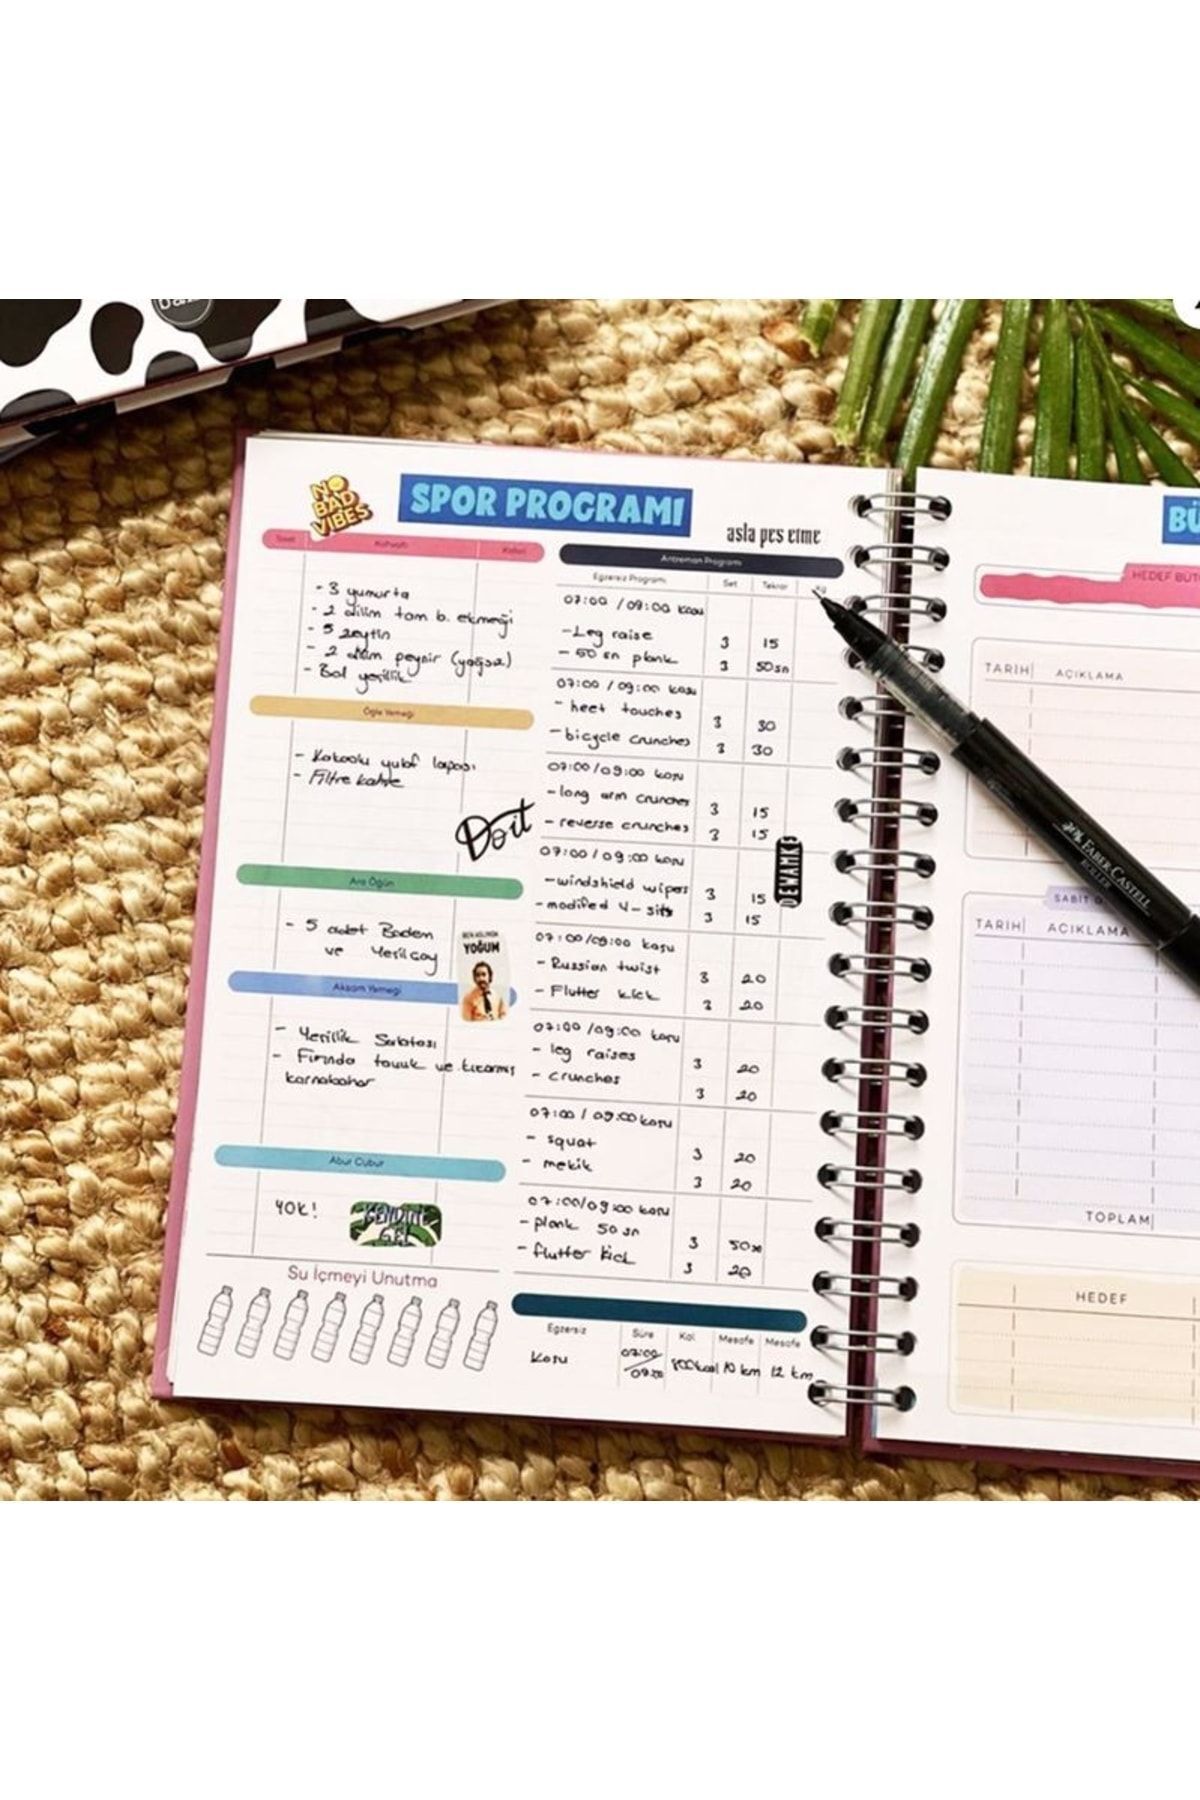 NO
BAD
VIBES
SPOR PROGRAMI
asla pes etme
Saat Kahvaltı Kalori
- 3 yumurta
- 2 dilim tam b. ekmeği
- 5 zeytin
- 2 dilim peynir (yağsız)
- Bol yeşillik
Öğle Yemeği
- Kakaolu yulaf lapası
- Filtre kahve
Do it
Ara Öğün
- 5 adet Badem
ve Yeşilçay
YOĞUM
Akşam Yemeği
- Yeşillik Salatası
- Fırında tavuk ve kızarmış
karnabahar
Abur Cubur
YOK!
KENDİNE
GEL
Su İçmeyi Unutma
Antreman Programı
Egzersiz Programı Set Tekrar Kg
07:00 / 09:00 koşu
- Leg raise 3 15
- 50 sn plank 3 50sn
07:00 / 09:00 koşu
- heet touches 3 30
- bicycle crunches 3 30
07:00/09:00 koşu
- long arm crunches 3 15
- reverse crunches 3 15
07:00/09:00 koşu
- windshield wipers 3 15
- modified V-sits 3 15
DEVAMKE
07:00/09:00 koşu
- Russian twist 3 20
- Flutter kick 3 20
07:00/09:00 koşu
- leg raises 3 20
- crunches 3 20
07:00/09:00 koşu
- squat 3 20
- mekik 3 20
07:00/09:00 koşu
- plank 50 sn 3 50sn
- flutter kick 3 20
Egzersiz Süre Kal Mesafe Mesafe
Koşu 07:00/09:00 10 km 12 km
FABER CASTELL
ROLLER
BÜ
HEDEF BÜT
TARİH AÇIKLAMA
SABİT
TARİH AÇIKLAMA
TOPLAM
HEDEF